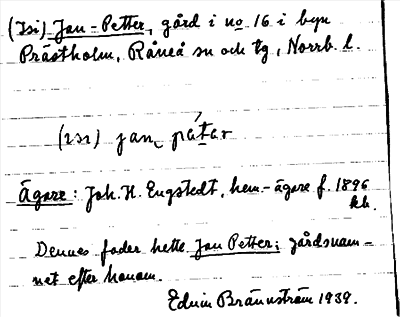 (Isi) Jan-Petter, gård i no 16 i byn
Prästholm, Råneå sn och tg, Norrb. l.
(ɪsɪ) jan, pétar
Ägare: Joh. H. Engstedt, hem.-ägare f. 1896
kb.
Dennes fader hette Jan Petter; gårdsnam-
net efter honom.
Edvin Brännström 1939.